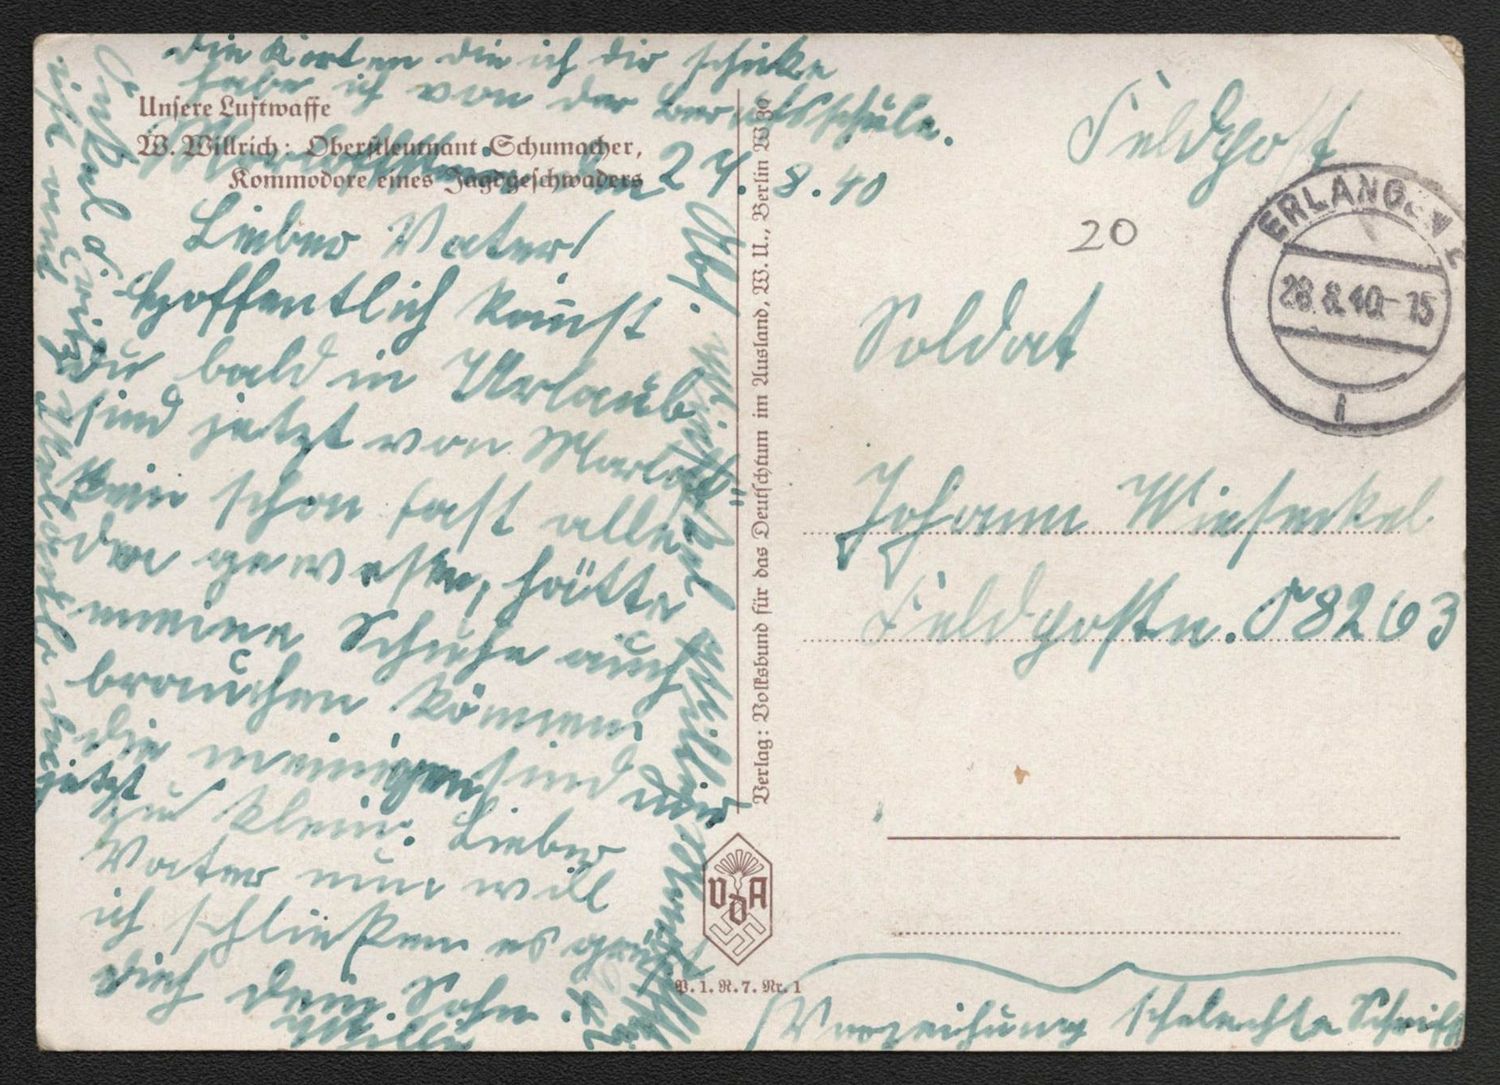 Die Karten die ich dir schicke
habe ich von der Berufsschule.
Unsere Luftwaffe
W. Willrich: Oberstleutnant Schumacher,
Kommodore eines Jagdgeschwaders
den 27.8.40
Lieber Vater!
Hoffentlich kannst
Du bald in Urlaub
sind jetzt von Marlof=
kein schon fast alle
da gewesen, hätte
meine Schuhe auch
brauchen können
die meinigen sind mir
jetzt zu klein. Lieber
Vater nun will
ich schließen es grüßt
Dich dein Sohn
Willi
Verlag: Volksbund für das Deutschtum im Ausland, W. U., Berlin W 30
VDA
P. 1. R. 7. Nr. 1
Feldpost
20
ERLANGEN 2
28.8.40.-15
i
Soldat
Johann Wiesenkel
Feldpostn. 08263
Verzeihung schlechte Schrift